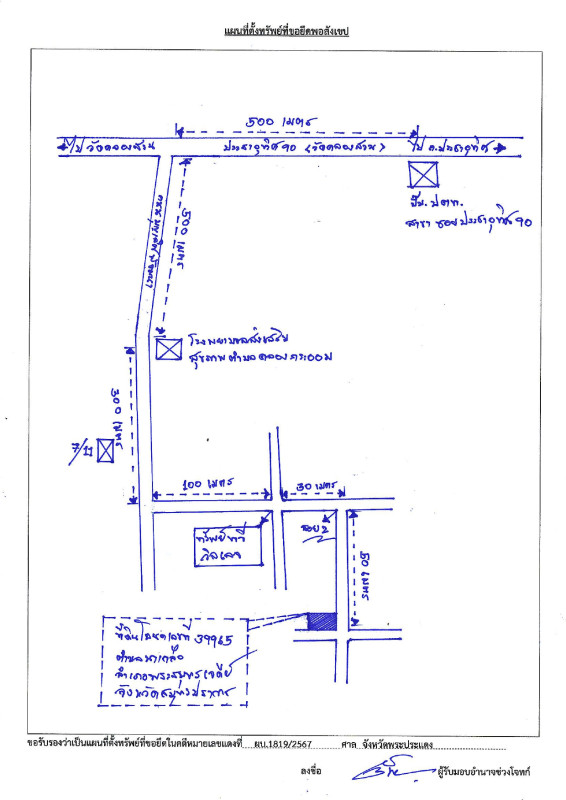 แผนที่ตั้งทรัพย์ที่ขอยึดพอสังเขป
500 เมตร
ไป วัดคลองสวน
ประชาอุทิศ 90 (วัดคลองสวน)
ไป ถ.ประชาอุทิศ
ปั๊ม ปตท.
สาขา ซอยประชาอุทิศ 90
500 เมตร
โรงพยาบาลส่งเสริม
สุขภาพตำบลคลอง
300 เมตร
7/11
100 เมตร
30 เมตร
ทรัพย์ที่
ซอย 2
50 เมตร
ที่ดินโฉนดเลขที่ 39965
ตำบลนาเกลือ
อำเภอพระสมุทรเจดีย์
จังหวัดสมุทรปราการ
ขอรับรองว่าเป็นแผนที่ตั้งทรัพย์ที่ขอยึดในคดีหมายเลขแดงที่ ผบ.1819/2567 ศาล จังหวัดพระประแดง
ลงชื่อ ผู้รับมอบอำนาจช่วงโจทก์